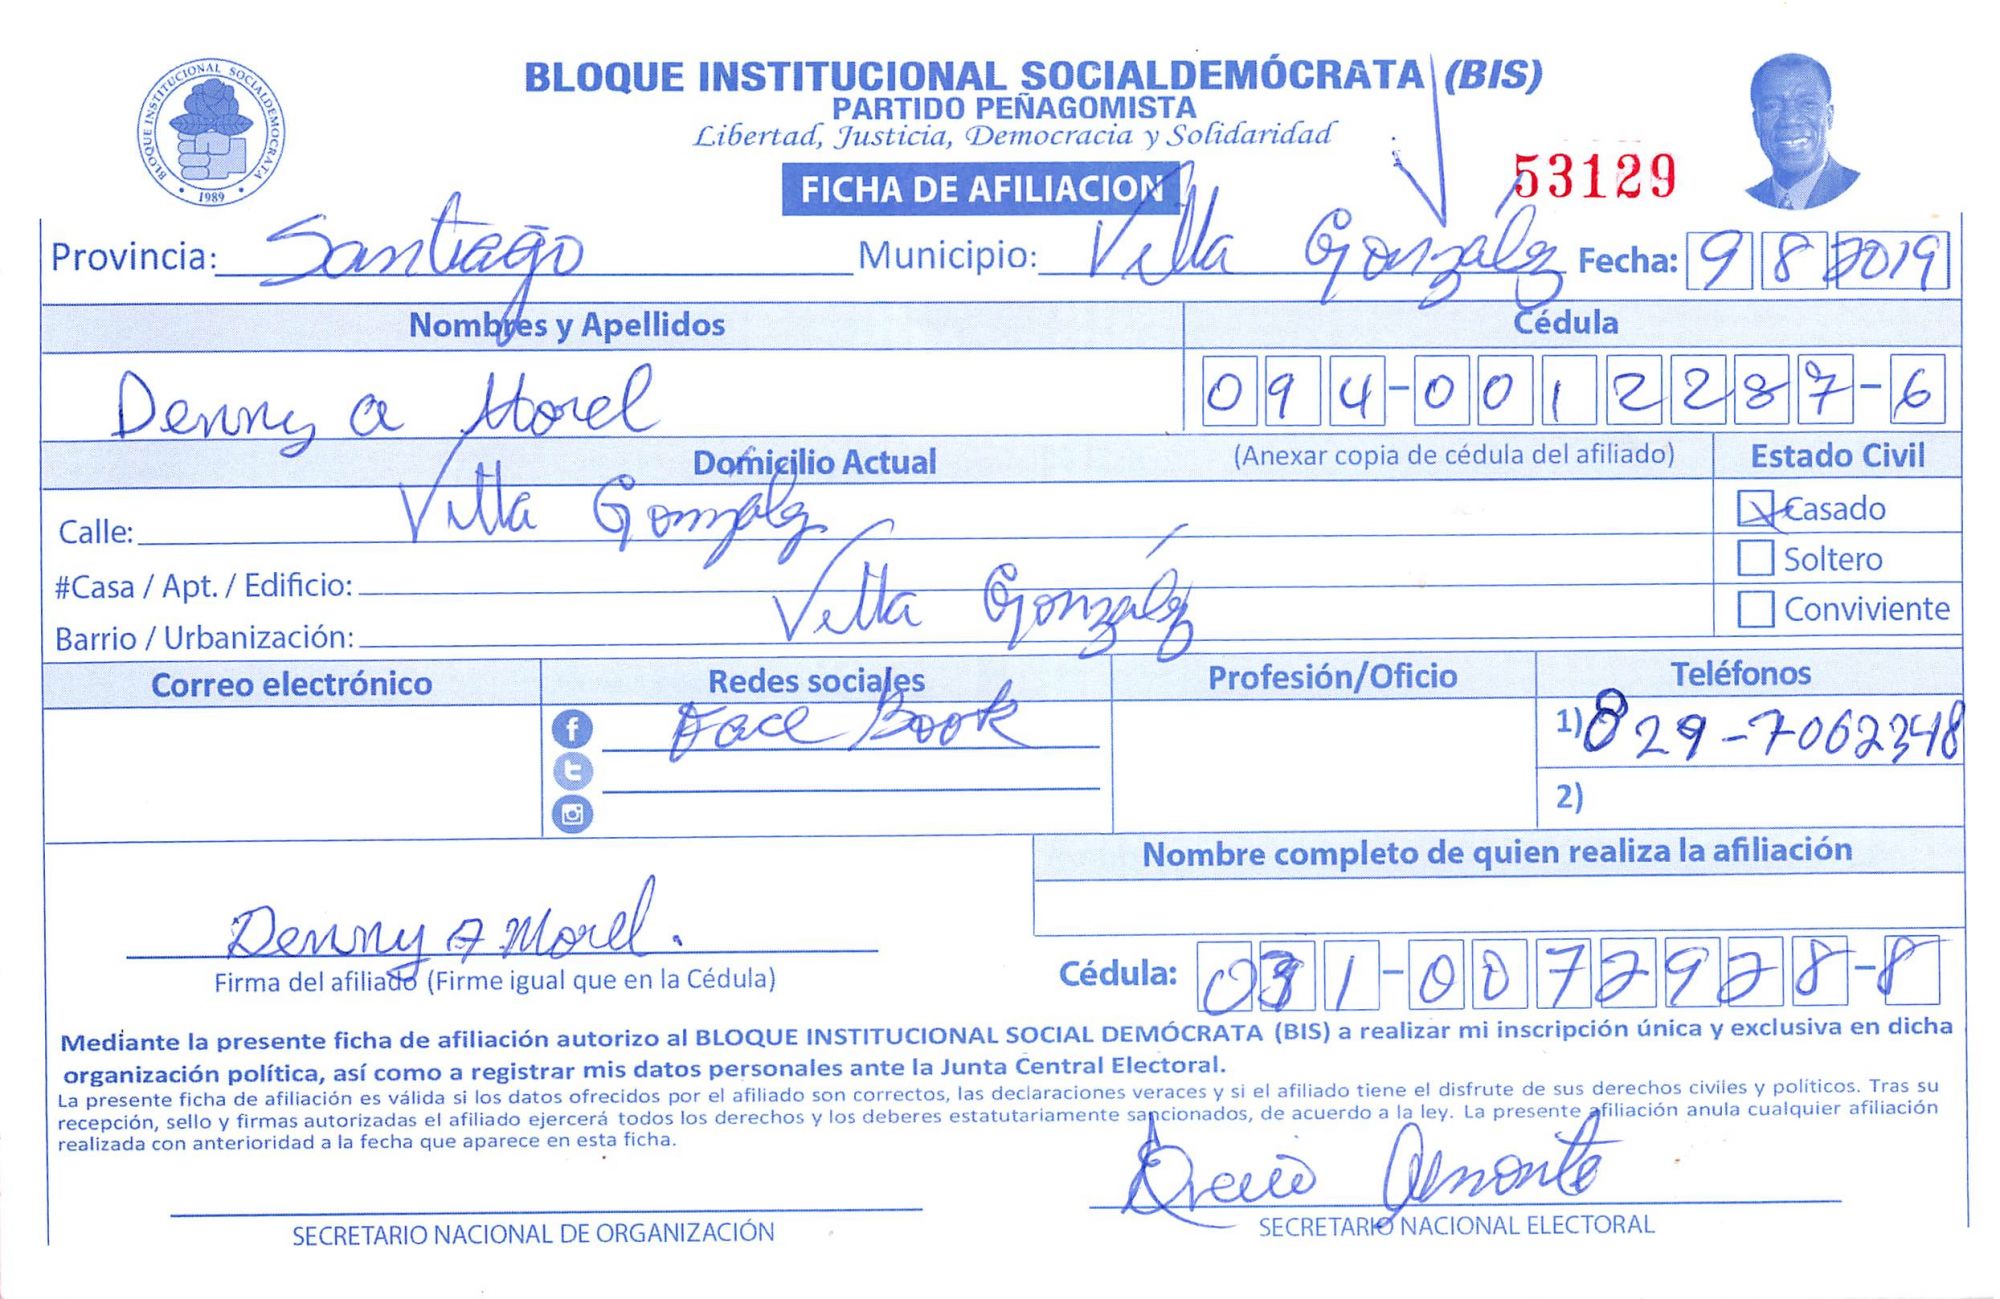 BLOQUE INSTITUCIONAL SOCIALDEMÓCRATA (BIS)
PARTIDO PEÑAGOMISTA
Libertad, Justicia, Democracia y Solidaridad
BLOQUE INSTITUCIONAL SOCIALDEMOCRATA
1989
FICHA DE AFILIACION
53129
Provincia: Santiago Municipio: Villa González Fecha: 9 8 2019
Nombres y Apellidos Cédula
Denny a Morel 094-0012287-6
Domicilio Actual (Anexar copia de cédula del afiliado) Estado Civil
Calle: Villa González Casado
#Casa / Apt. / Edificio: Soltero
Barrio / Urbanización: Villa González Conviviente
Correo electrónico Redes sociales Profesión/Oficio Teléfonos
Face Book 1) 829-7062348
2)
Nombre completo de quien realiza la afiliación
Denny A Morel.
Firma del afiliado (Firme igual que en la Cédula) Cédula: 031-0072928-8
Mediante la presente ficha de afiliación autorizo al BLOQUE INSTITUCIONAL SOCIAL DEMÓCRATA (BIS) a realizar mi inscripción única y exclusiva en dicha
organización política, así como a registrar mis datos personales ante la Junta Central Electoral.
La presente ficha de afiliación es válida si los datos ofrecidos por el afiliado son correctos, las declaraciones veraces y si el afiliado tiene el disfrute de sus derechos civiles y políticos. Tras su
recepción, sello y firmas autorizadas el afiliado ejercerá todos los derechos y los deberes estatutariamente sancionados, de acuerdo a la ley. La presente afiliación anula cualquier afiliación
realizada con anterioridad a la fecha que aparece en esta ficha.
Almonte
SECRETARIO NACIONAL DE ORGANIZACIÓN SECRETARIO NACIONAL ELECTORAL